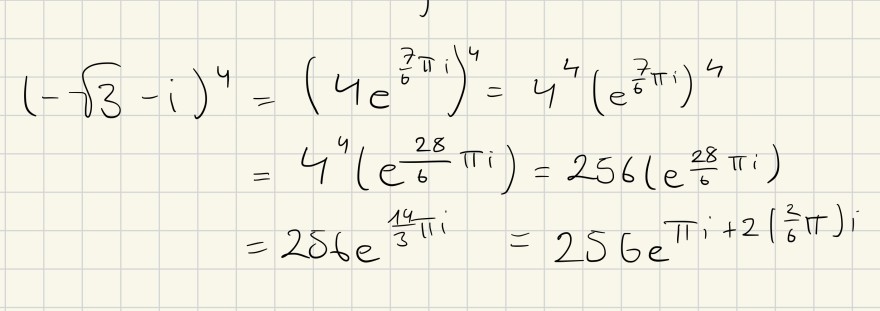 (-√3 - i)^4 = (4e^{7/6 πi})^4 = 4^4(e^{7/6 πi})^4
= 4^4(e^{28/6 πi}) = 256(e^{28/6 πi})
= 256e^{14/3 πi} = 256e^{πi+2(2/6 π)i}